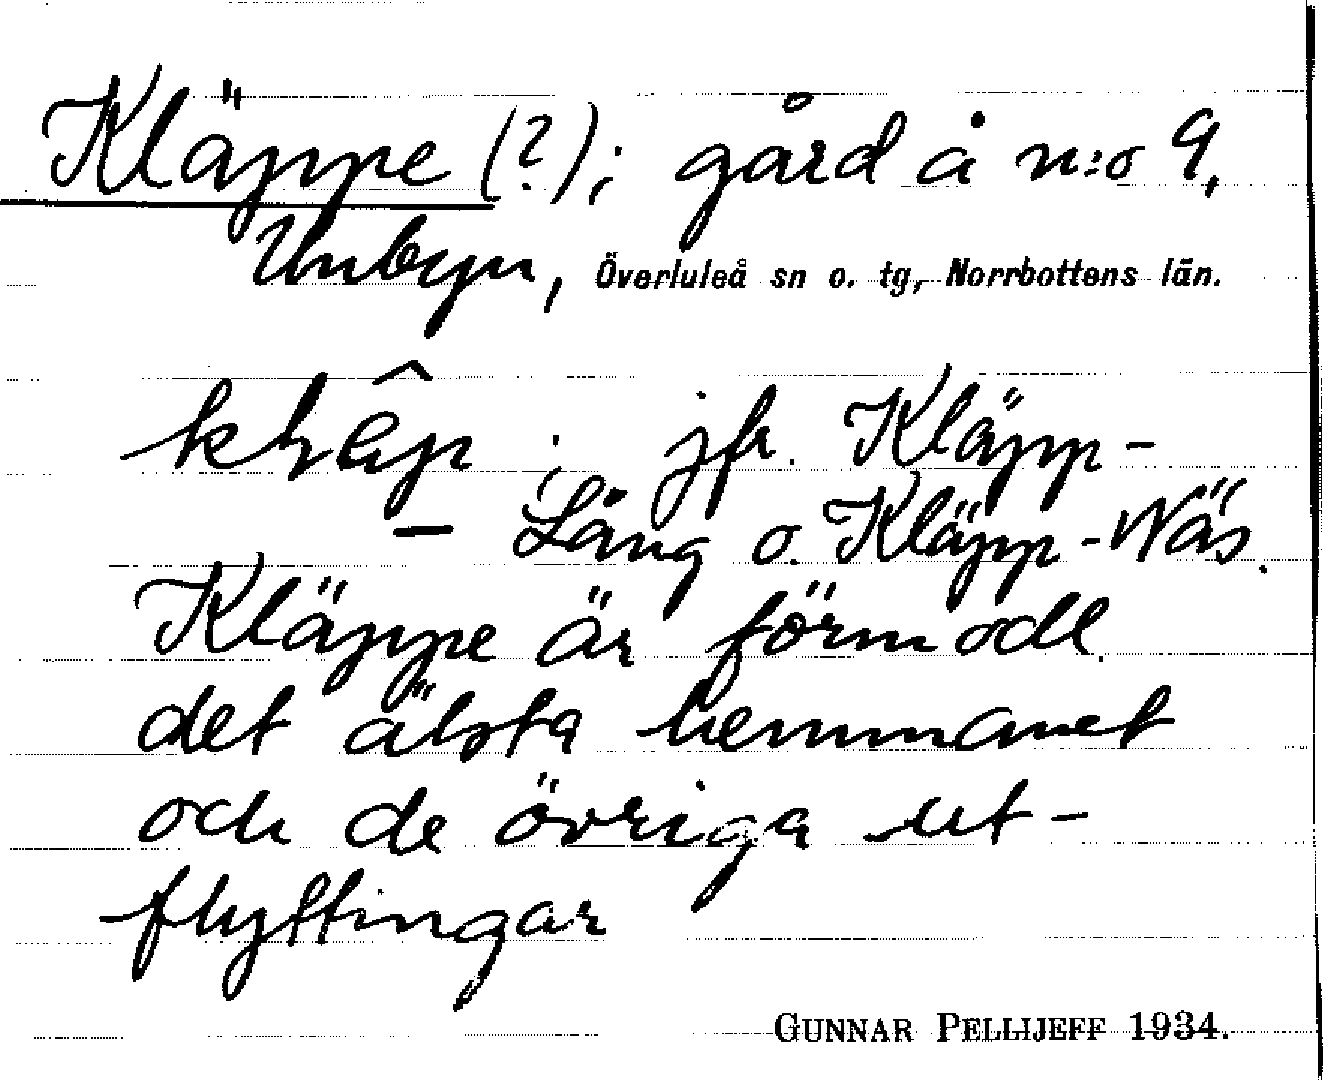 Kläppe (?); gård å n:o 9,
Unbyn, Överluleå sn o. tg, Norrbottens län.
jfr. Kläpp-
- Läng o. Kläpp-Näs.
Kläppe är förmodl.
det älsta hemmanet
och de övriga ut-
flyttingar
GUNNAR PELLIJEFF 1934.